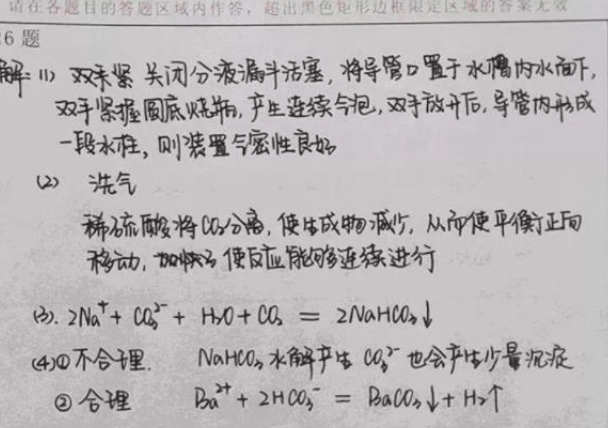 请在各题目的答题区域内作答，超出黑色矩形边框限定区域的答案无效
16题
解：(1) 关闭分液漏斗活塞，将导管口置于水槽内水面下，
双手紧握圆底烧瓶，产生连续气泡，双手放开后，导管内形成
一段水柱，则装置气密性良好
(2) 洗气
稀硫酸将CO₂分离，使生成物减少，从而使平衡正向
移动，使反应能够连续进行
(3). 2Na⁺ + CO₃²⁻ + H₂O + CO₂ = 2NaHCO₃↓
(4) ① 不合理. NaHCO₃ 水解产生 CO₃²⁻ 也会产生少量沉淀
② 合理 Ba²⁺ + 2HCO₃⁻ = BaCO₃↓ + H₂↑